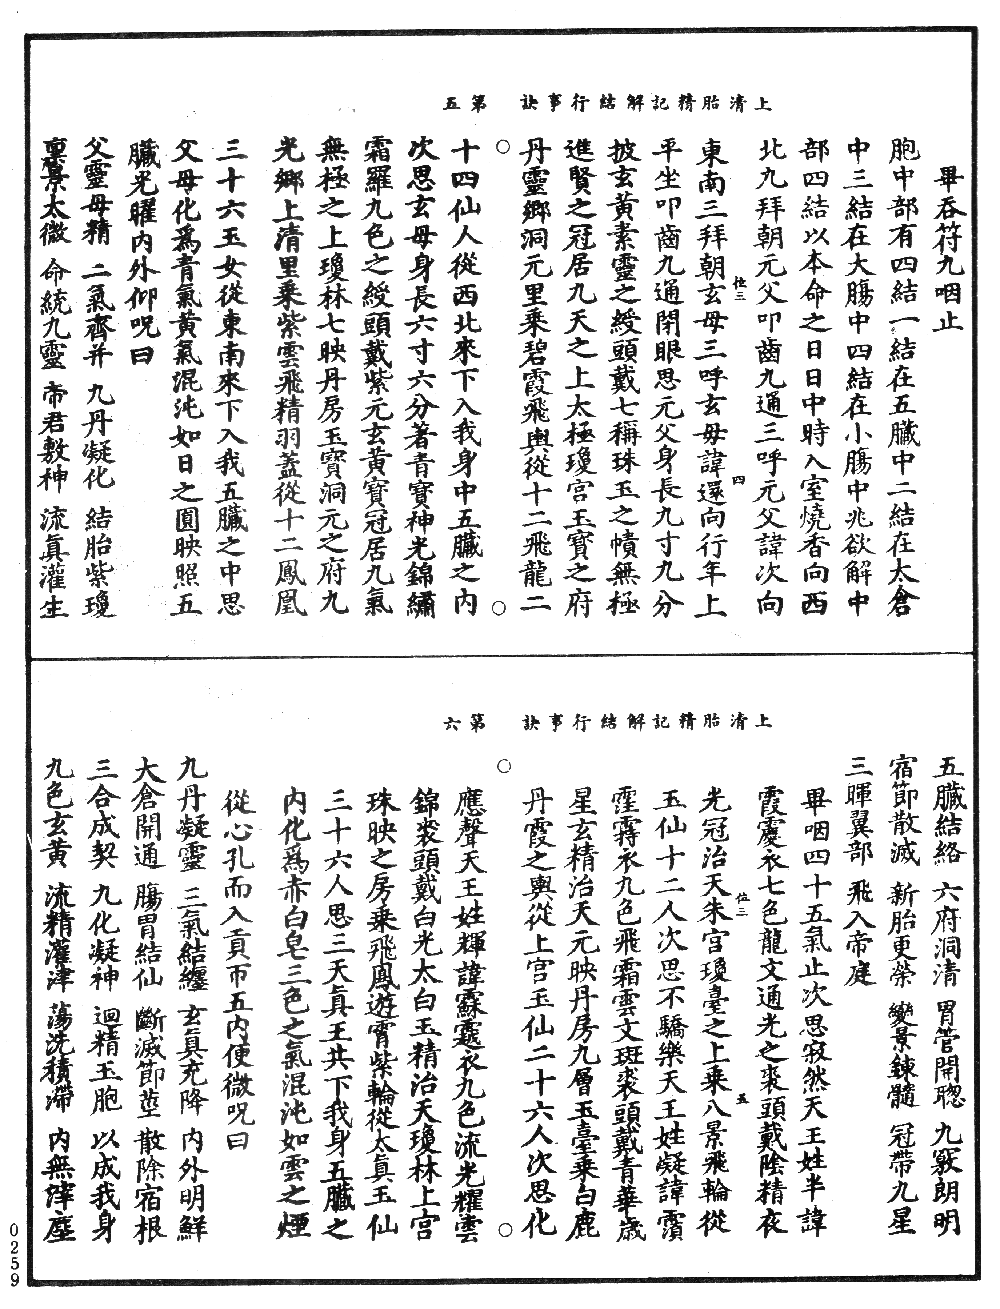 上清胎精記解結行事訣　第五
畢吞符九咽止
胞中部有四結一結在五臟中二結在太倉
中三結在大腸中四結在小腸中兆欲解中
部四結以本命之日日中時入室燒香向西
北九拜朝元父叩齒九通三呼元父諱次向
位三　四
東南三拜朝玄母三呼玄母諱還向行年上
平坐叩齒九通閉眼思元父身長九寸九分
披玄黃素靈之綬頭戴七稱珠玉之幘無極
進賢之冠居九天之上太極瓊宮玉寶之府
丹靈鄉洞元里乘碧霞飛輿從十二飛龍二
十四仙人從西北來下入我身中五臟之內
次思玄母身長六寸六分著青寶神光錦繡
霜羅九色之綬頭戴紫元玄黃寶冠居九氣
無極之上瓊林七映丹房玉寶洞元之府九
光鄉上清里乘紫雲飛精羽蓋從十二鳳凰
三十六玉女從東南來下入我五臟之中思
父母化為青氣黃氣混沌如日之圓映照五
臟光曜內外仰呪曰
父靈母精　二氣齊并　九丹凝化　結胎紫瓊
稟景太微　命統九靈　帝君敷神　流真灌生
上清胎精記解結行事訣　第六
五臟結絡　六府洞清　胃管開聰　九竅朗明
宿節散滅　新胎更榮　變景鍊髓　冠帶九星
三暉翼部　飛入帝庭
畢咽四十五氣止次思寂然天王姓半諱
霞䨴衣七色龍文通光之裘頭戴陰精夜
位三　五
光冠治天朱宮瓊臺之上乘八景飛輪從
玉仙十二人次思不驕樂天王姓凝諱
衣九色飛霜雲文斑裘頭戴青華歲
星玄精治天元映丹房九層玉臺乘白鹿
丹霞之輿從上宮玉仙二十六人次思化
應聲天王姓輝諱衣九色流光耀雲
錦裘頭戴白光太白玉精治天瓊林上宮
珠映之房乘飛鳳遊霄紫輪從太真玉仙
三十六人思三天真王共下我身五臟之
內化為赤白皂三色之氣混沌如雲之煙
從心孔而入貢帀五內便微呪曰
九丹凝靈　三氣結纏　玄真充降　內外明鮮
大倉開通　腸胃結仙　斷滅節䔲　散除宿根
三合成契　九化凝神　迴精玉胞　以成我身
九色玄黃　流精灌津　蕩洗積滯　內無滓塵
0259